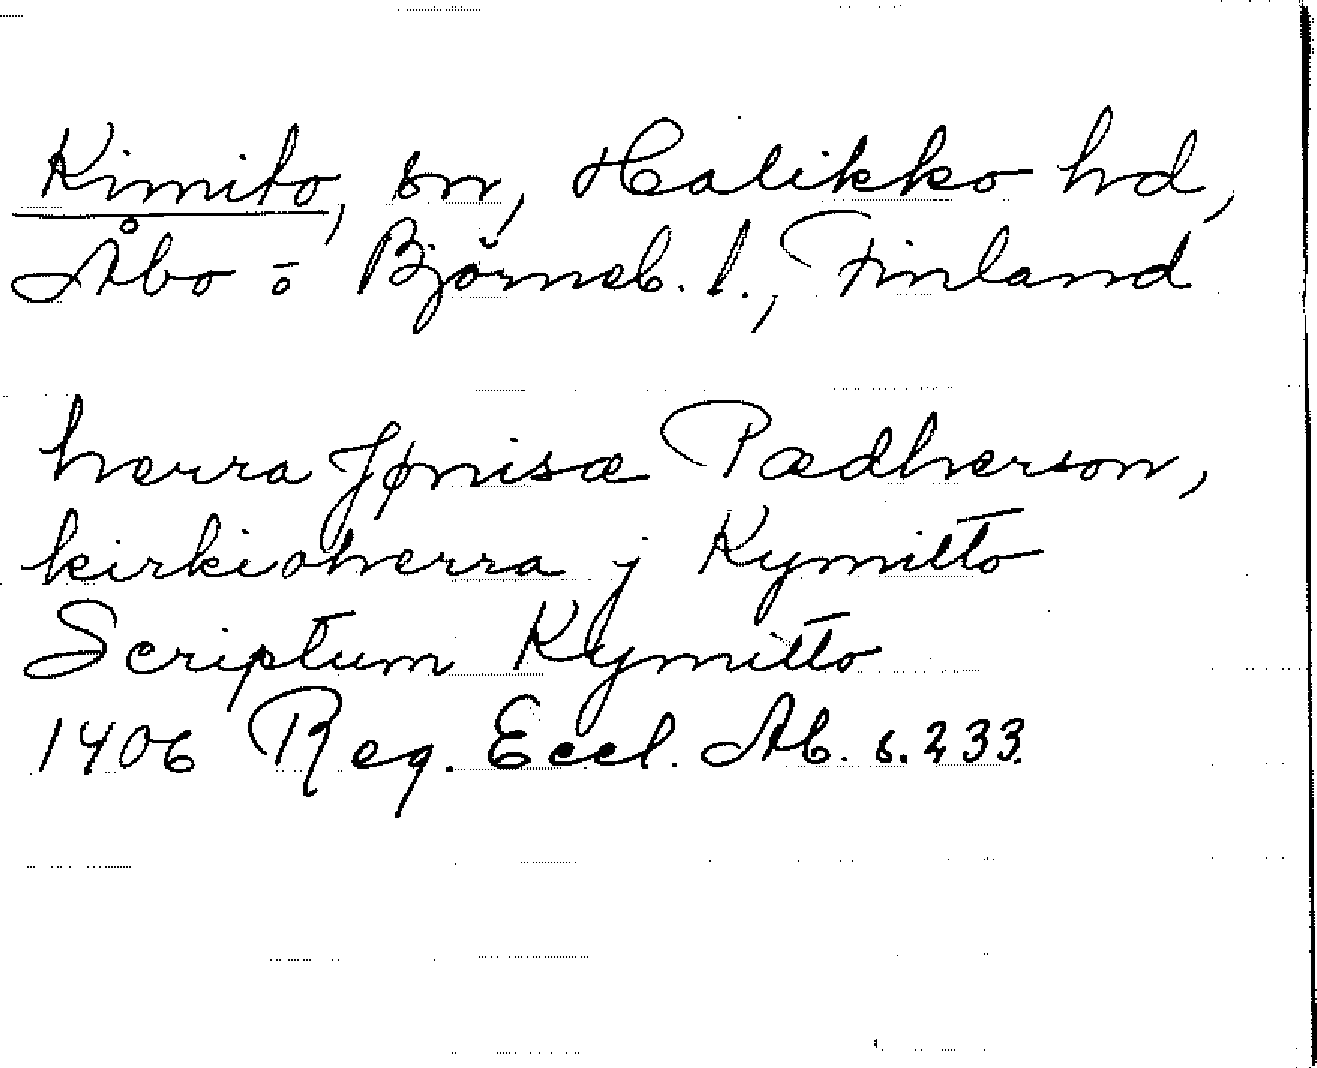 Kimito, sn, Halikko hd,
Åbo o Björneb. l., Finland
herra Jønisæ Pædherson,
kirkioherra j Kymitto
Scriptum Kymitto
1406 Reg. Eccl. Ab. s. 233.